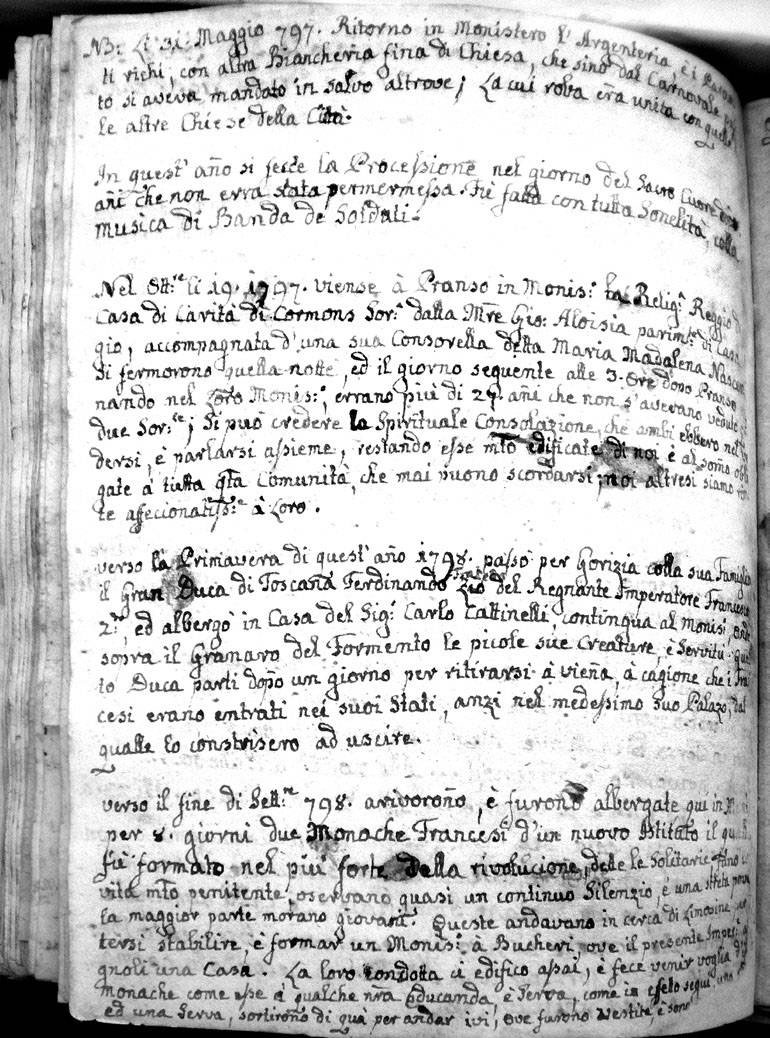 NB: Li 31. Maggio 797. Ritorno in Monistero l'Argenteria, è i Param
ti richi, con altra Biancheria fina di Chiesa, che sino dal Carnovale
to si aveva mandato in salvo altrove; La cui roba era unita con quella
le altre Chiese della Città.
In quest' año si fecce la Processione nel giorno del Sacro Cuore
añi che non erra stata permermessa. Fù fatta con tutta Sonelità, colla
musica di Banda de Soldati.
Nel Ott.re li 19. 1797. viense à Pranso in Monis.o la Relig.a Reggio
Casa di Carità di Cormons Sor.a dalla Mre Gio: Aloisia parim.te di Casa
gio, accompagnata d'una sua Consorella detta Maria Madalena
Si fermorono quella notte, ed il giorno seguente alle 3. Ore dopo Pranso
nando nel Loro Monis.o, errano più di 29. añi che non s'averano vedute
due Sor.le; Si può credere la Spirituale Consolazione, che ambi ebbero nel
dersi, è parlarsi assieme, restando esse mto edificate di noi è al somo
gate à tutta qta Comunità, che mai puono scordarsi; noi altresi siamo
te affecionatiss.e à Loro.
verso la Primavera di quest' año 1798. passò per Gorizia colla sua Famiglia
il Gran Duca di Toscaña Ferdinando del Regnante Imperatore Francesco
2.do, ed albergò in Casa del Sig.r Carlo Cattinelli, contingua al Monis.o,
sopra il Granaro del Formento le picole sue Creature, è Servitù.
to Duca parti dopo un giorno per ritirarsi à vieña, à cagione che i Fra
cesi erano entrati nei suoi Stati, anzi nel medessimo suo Palazo, dal
qualle lo constrisero ad uscire.
verso il fine di Sett.re 798. arivoroño, è furoño albergate qui in
per 8. giorni due Monache Francesi d'un nuovo Istituto il
fù formato nel più forte della rivolucione, dette le Solitarie
vità mto penitente, oservano quasi un continuo Silenzio, è una
la maggior parte morano giovani. Queste andavano in cerca di Limosine,
tersi stabilire, è formar un Monis.o à Bucheri, ove il presente
gnoli una Casa. La loro condotta ci edifico assai, è fece venir voglia
monache come esse à qualche nra Educanda, è Serva, come in efetto segui,
ed una Serva, sortiroño di quà per andar ivi, ove furoño vestite, è sono